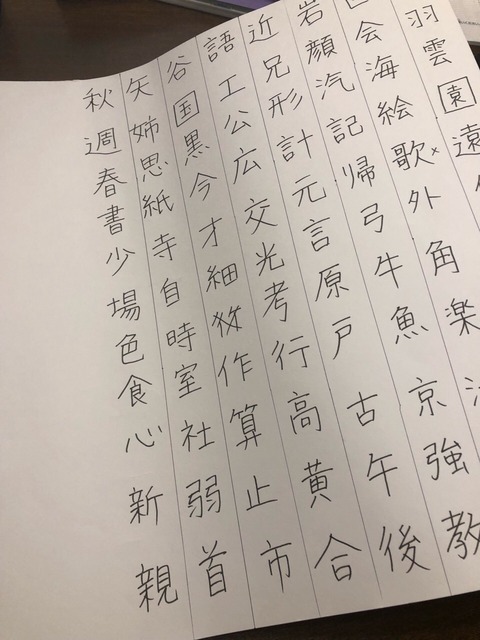 羽雲園遠
会海絵歌外角楽
岩顔汽記帰弓牛魚京強教
近兄形計元言原戸古午後
語工公広交光考行高黄合
谷国黒今才細作算止市
矢姉思紙寺自時室社弱首
秋週春書少場色食心新親